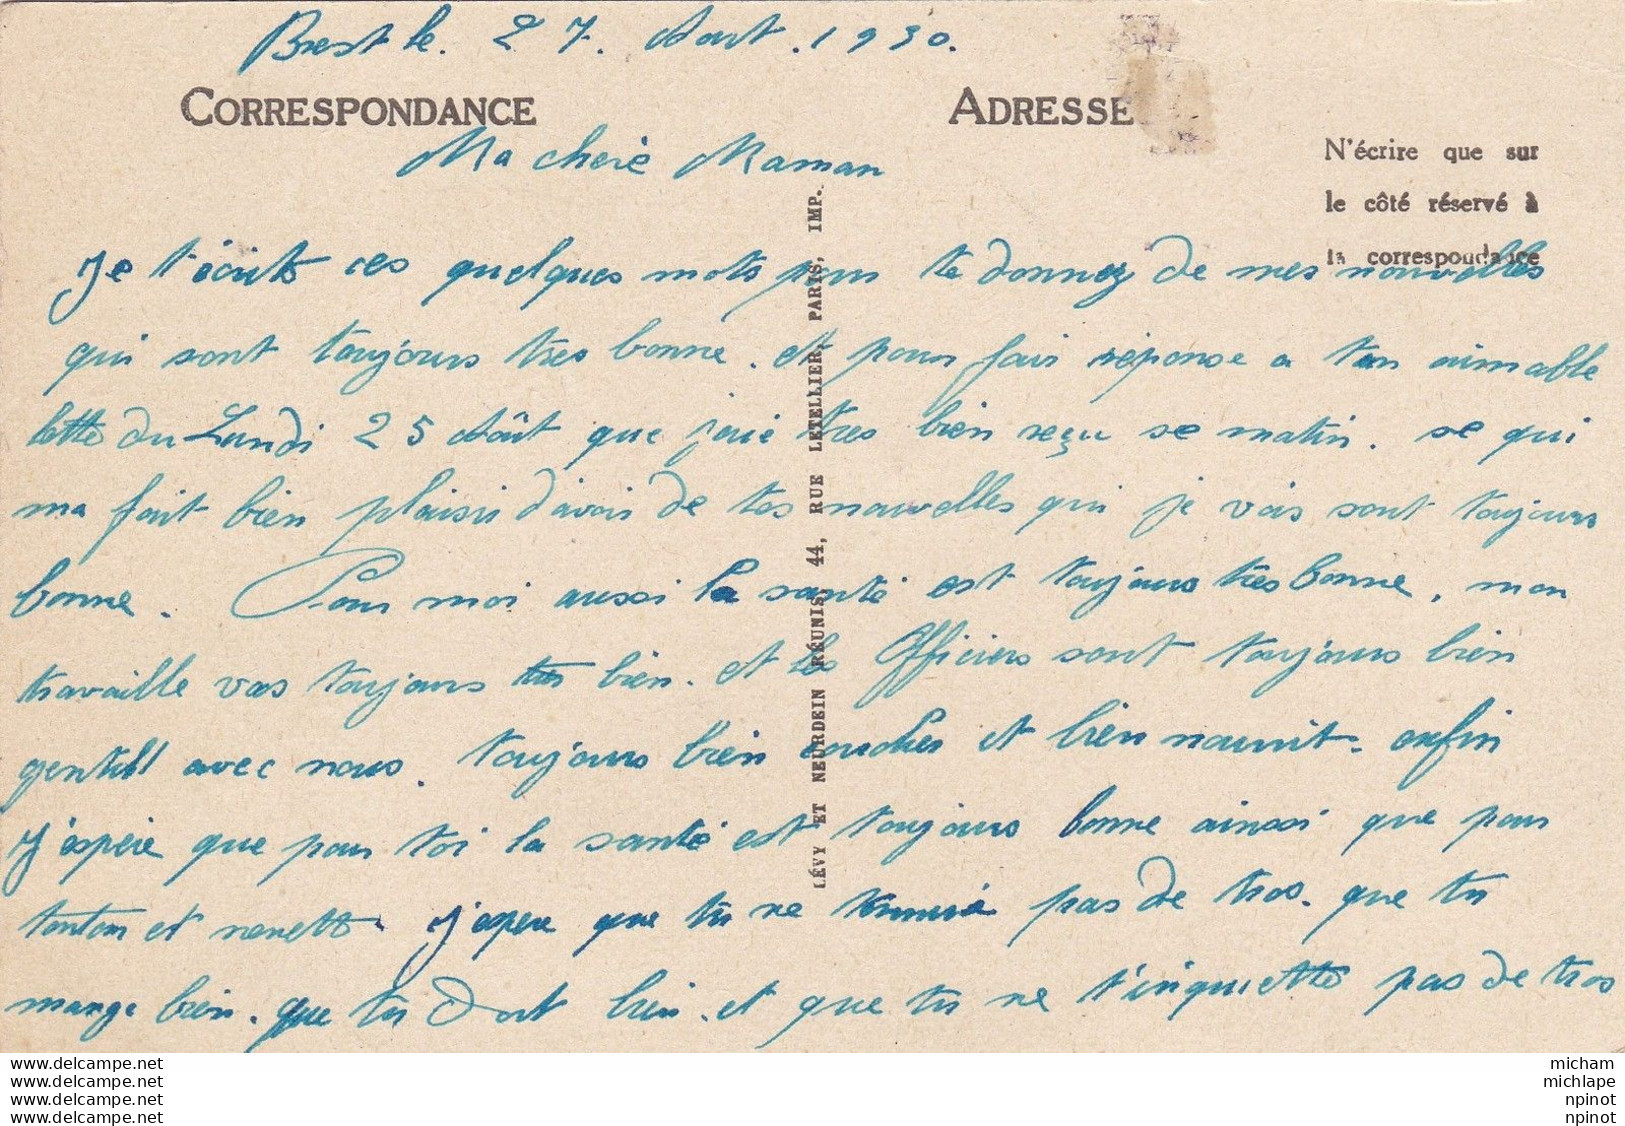 Brest le. 27. Aout. 1930.
CORRESPONDANCE
ADRESSE
N'écrire que sur
le côté réservé à
la correspondance
Ma cherè Maman
Je t'écrits ces quelques mots pour te donnez de mes nouvelles
qui sont toujours tres bonne. et pour fair réponse a ton aimable
lettre du Lundi 25 Août que j'aie tres bien reçu se matin. se qui
ma fait bien plaisir d'avoir de tes nouvelles qui je vois sont toujours
bonne. Pour moi aussi la santé est toujours tres bonne, mon
travaille vas toujours tres bien. et les Officiers sont toujours bien
gentill avec nous. toujours bien coucher et bien nourrit. enfin
j'espère que pour toi la santé est toujours bonne ainsi que pour
tonton et nenette. j'espere que tu ne pas de tros. que tu
mange bien. que tu dort bien. et que tu ne t'inquiette pas de tros
LÉVY ET NEURDEIN RÉUNIS, 44, RUE LETELLIER, PARIS, IMP.
www.delcampe.net
www.delcampe.net
www.delcampe.net
www.delcampe.net
micham
michlape
npinot
npinot